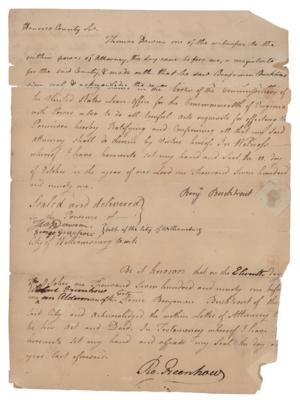 Henrico County Sc.
Thomas Dawson one of the witnesses to the
within power of Attorney, this day came before me, a magistrate
for the said County, & made oath that he saw Benjamin Bucktrout
sign seal & acknowledge the same books of the Commissioners of
the United States Loan Office for the Commonwealth of Virginia
with Power also to do all lawful Acts requisite for effecting the
Premises hereby Ratifying and Confirming all that my said
Attorney shall do therein by Virtue hereof In Witness
whereof I have hereunto set my hand and Seal the 11 day
of October in the year of our Lord one Thousand Seven hundred
and ninety one.
Benj Bucktrout
Sealed and delivered
in the Presence of
Dawson
both of the City of Williamsburg
City of Williamsburg
Be it known that on the Eleventh day
of October, one Thousand Seven hundred and ninety one before
me an Alderman of the City came Benjamin Bucktrout of the
said City and Acknowledged the within Letter of Attorney to
be his Act and Deed. In Testimony whereof I have
hereunto set my hand and affixed my Seal the day and
year last aforesaid.
Ro. Greenhow